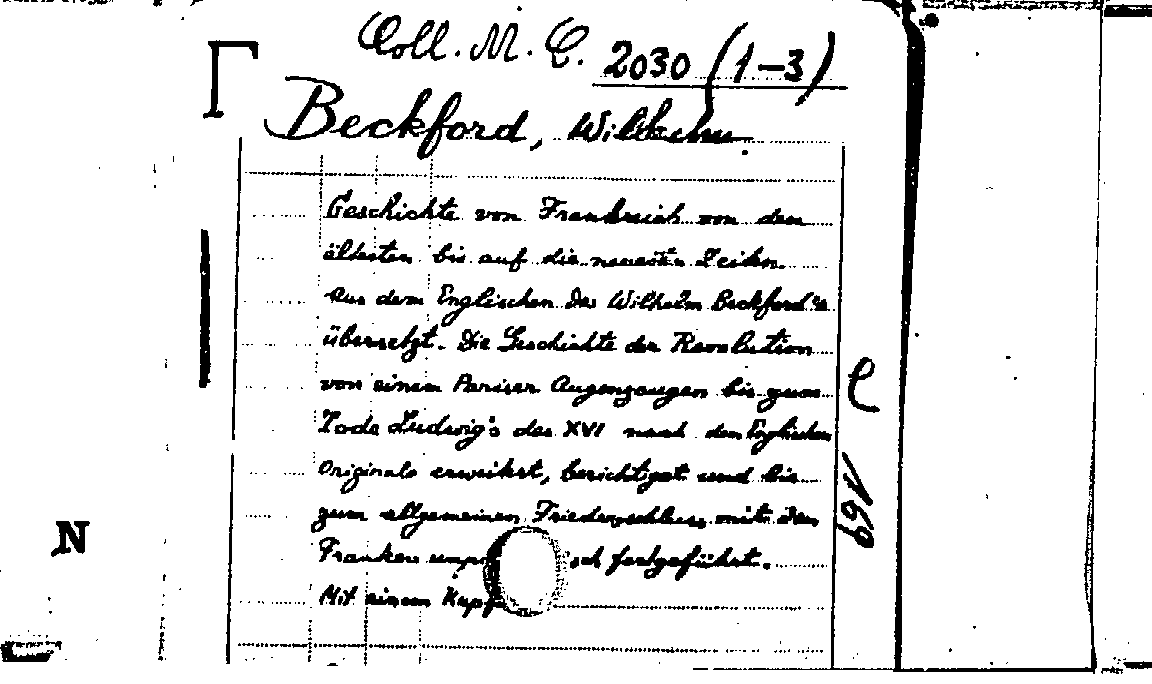 Coll. M. C. 2030 (1-3)
Beckford, Wilhelm
Geschichte von Frankreich von den
ältesten bis auf die neuesten Zeiten.
Aus dem Englischen des Wilhelm Beckford's
übersetzt. Die Geschichte der Revolution
von einem Pariser Augenzeugen bis zum
Tode Ludwig's des XVI nach den Englischen
Originale erweitert, berichtigt und bis
zum allgemeinen Friedensschluss mit den
Franken ump sch fortgeführt.
Mit einem Kupf
N